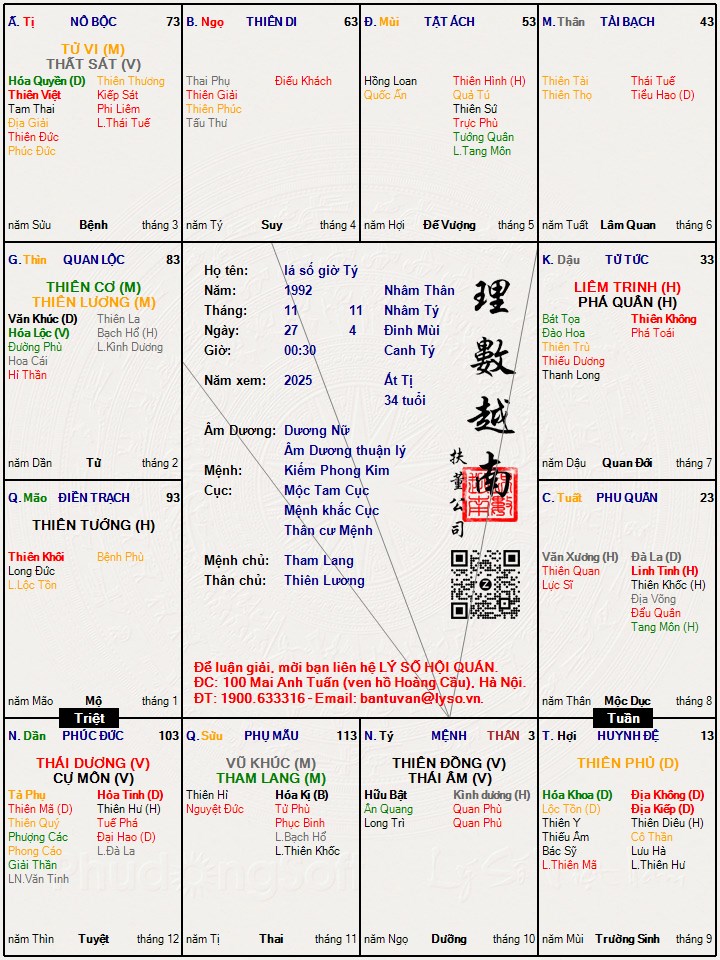 Ấ. Tị NÔ BỘC 73
TỬ VI (M)
THẤT SÁT (V)
Hóa Quyền (D) Thiên Thương
Thiên Việt Kiếp Sát
Tam Thai Phi Liêm
Địa Giải L.Thái Tuế
Thiên Đức
Phúc Đức
năm Sửu Bệnh tháng 3
B. Ngọ THIÊN DI 63
Thai Phụ Điếu Khách
Thiên Giải
Thiên Phúc
Tấu Thư
năm Tý Suy tháng 4
Đ. Mùi TẬT ÁCH 53
Hồng Loan Thiên Hình (H)
Quốc Ấn Quả Tú
Thiên Sứ
Trực Phù
Tướng Quân
L.Tang Môn
năm Hợi Đế Vượng tháng 5
M. Thân TÀI BẠCH 43
Thiên Tài Thái Tuế
Thiên Thọ Tiểu Hao (D)
năm Tuất Lâm Quan tháng 6
G. Thìn QUAN LỘC 83
THIÊN CƠ (M)
THIÊN LƯƠNG (M)
Văn Khúc (D) Thiên La
Hóa Lộc (V) Bạch Hổ (H)
Đường Phù L.Kình Dương
Hoa Cái
Hỉ Thần
năm Dần Tử tháng 2
Họ tên: lá số giờ Tý
Năm: 1992 Nhâm Thân
Tháng: 11 11 Nhâm Tý
Ngày: 27 4 Đinh Mùi
Giờ: 00:30 Canh Tý
Năm xem: 2025 Ất Tị
34 tuổi
Âm Dương: Dương Nữ
Âm Dương thuận lý
Mệnh: Kiếm Phong Kim
Cục: Mộc Tam Cục
Mệnh khắc Cục
Thân cư Mệnh
Mệnh chủ: Tham Lang
Thân chủ: Thiên Lương
理數越南
扶董公司
Để luận giải, mời bạn liên hệ LÝ SỐ HỘI QUÁN.
ĐC: 100 Mai Anh Tuấn (ven hồ Hoàng Cầu), Hà Nội.
ĐT: 1900.633316 - Email: bantuvan@lyso.vn.
K. Dậu TỬ TỨC 33
LIÊM TRINH (H)
PHÁ QUÂN (H)
Bát Tọa Thiên Không
Đào Hoa Phá Toái
Thiên Trù
Thiếu Dương
Thanh Long
năm Dậu Quan Đới tháng 7
Q. Mão ĐIỀN TRẠCH 93
THIÊN TƯỚNG (H)
Thiên Khôi Bệnh Phù
Long Đức
L.Lộc Tồn
năm Mão Mộ tháng 1
C. Tuất PHU QUÂN 23
Văn Xương (H) Đà La (D)
Thiên Quan Linh Tinh (H)
Lực Sĩ Thiên Khốc (H)
Địa Võng
Đẩu Quân
Tang Môn (H)
năm Thân Mộc Dục tháng 8
Triệt
Tuần
N. Dần PHÚC ĐỨC 103
THÁI DƯƠNG (V)
CỰ MÔN (V)
Tả Phụ Hỏa Tinh (D)
Thiên Mã (D) Thiên Hư (H)
Thiên Quý Tuế Phá
Phượng Các Đại Hao (D)
Phong Cáo L.Đà La
Giải Thần
LN.Văn Tinh
năm Thìn Tuyệt tháng 12
Q. Sửu PHỤ MẪU 113
VŨ KHÚC (M)
THAM LANG (M)
Thiên Hỉ Hóa Kị (B)
Nguyệt Đức Tử Phù
Phục Binh
L.Bạch Hổ
L.Thiên Khốc
năm Tị Thai tháng 11
N. Tý MỆNH THÂN 3
THIÊN ĐỒNG (V)
THÁI ÂM (V)
Hữu Bật Kình dương (H)
Ân Quang Quan Phù
Long Trì Quan Phủ
năm Ngọ Dưỡng tháng 10
T. Hợi HUYNH ĐỆ 13
THIÊN PHỦ (D)
Hóa Khoa (D) Địa Không (D)
Lộc Tồn (D) Địa Kiếp (D)
Thiên Y Thiên Diêu (H)
Thiếu Âm Cô Thần
Bác Sỹ Lưu Hà
L.Thiên Mã L.Thiên Hư
năm Mùi Trường Sinh tháng 9